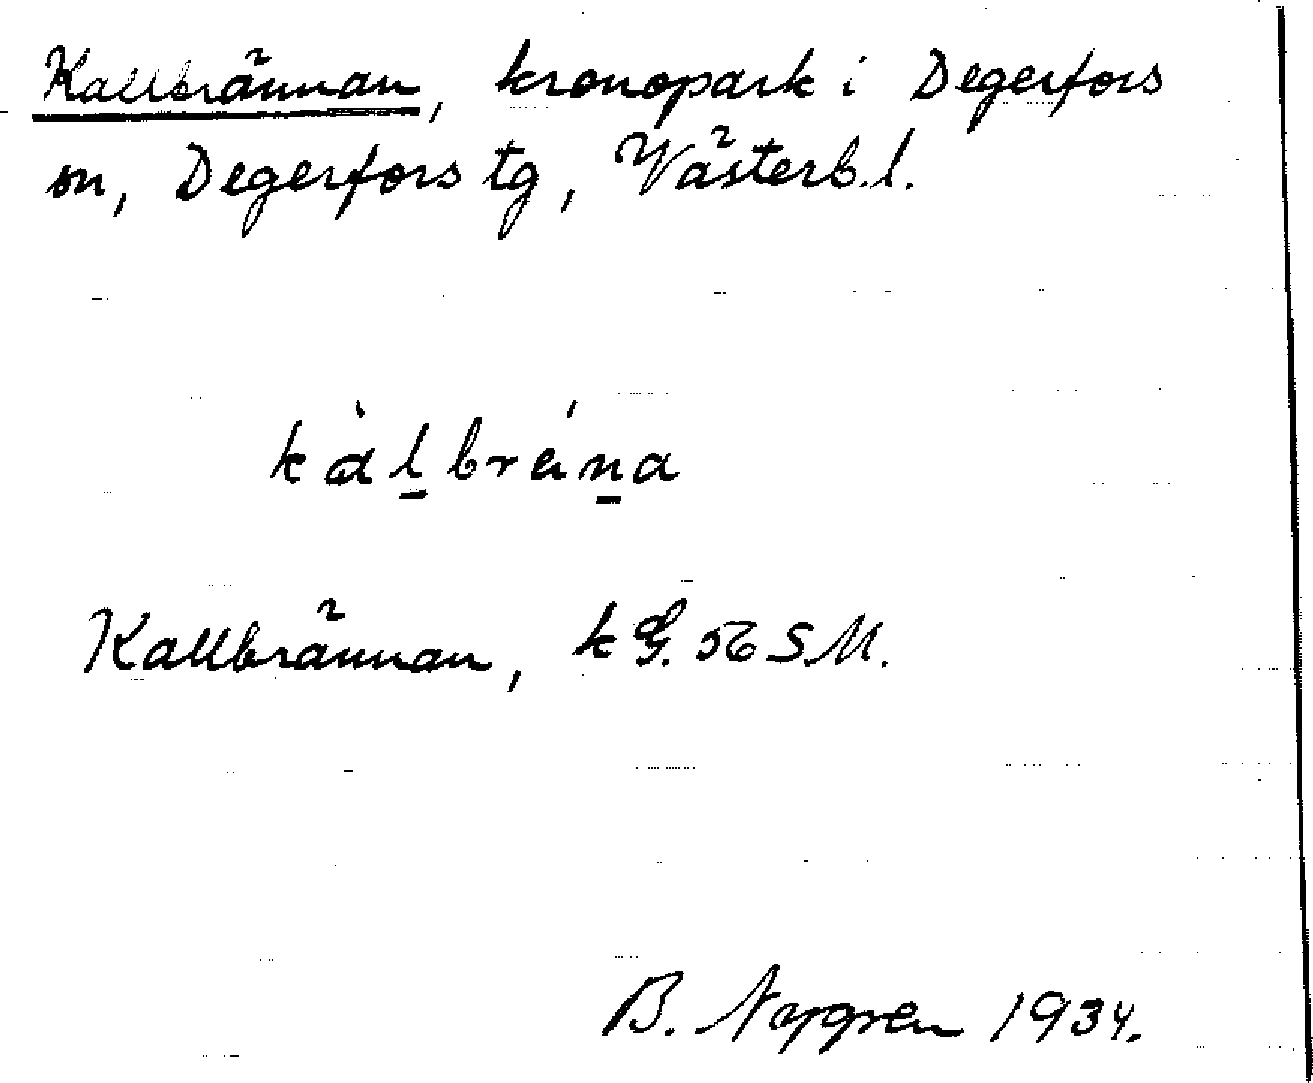 Kallbrännan, kronopark i Degerfors
sn, Degerfors tg, Västerb.l.
kàl̲brän̲a
Kallbrännan, k G. 56 S.M.
B. Nygren 1934.